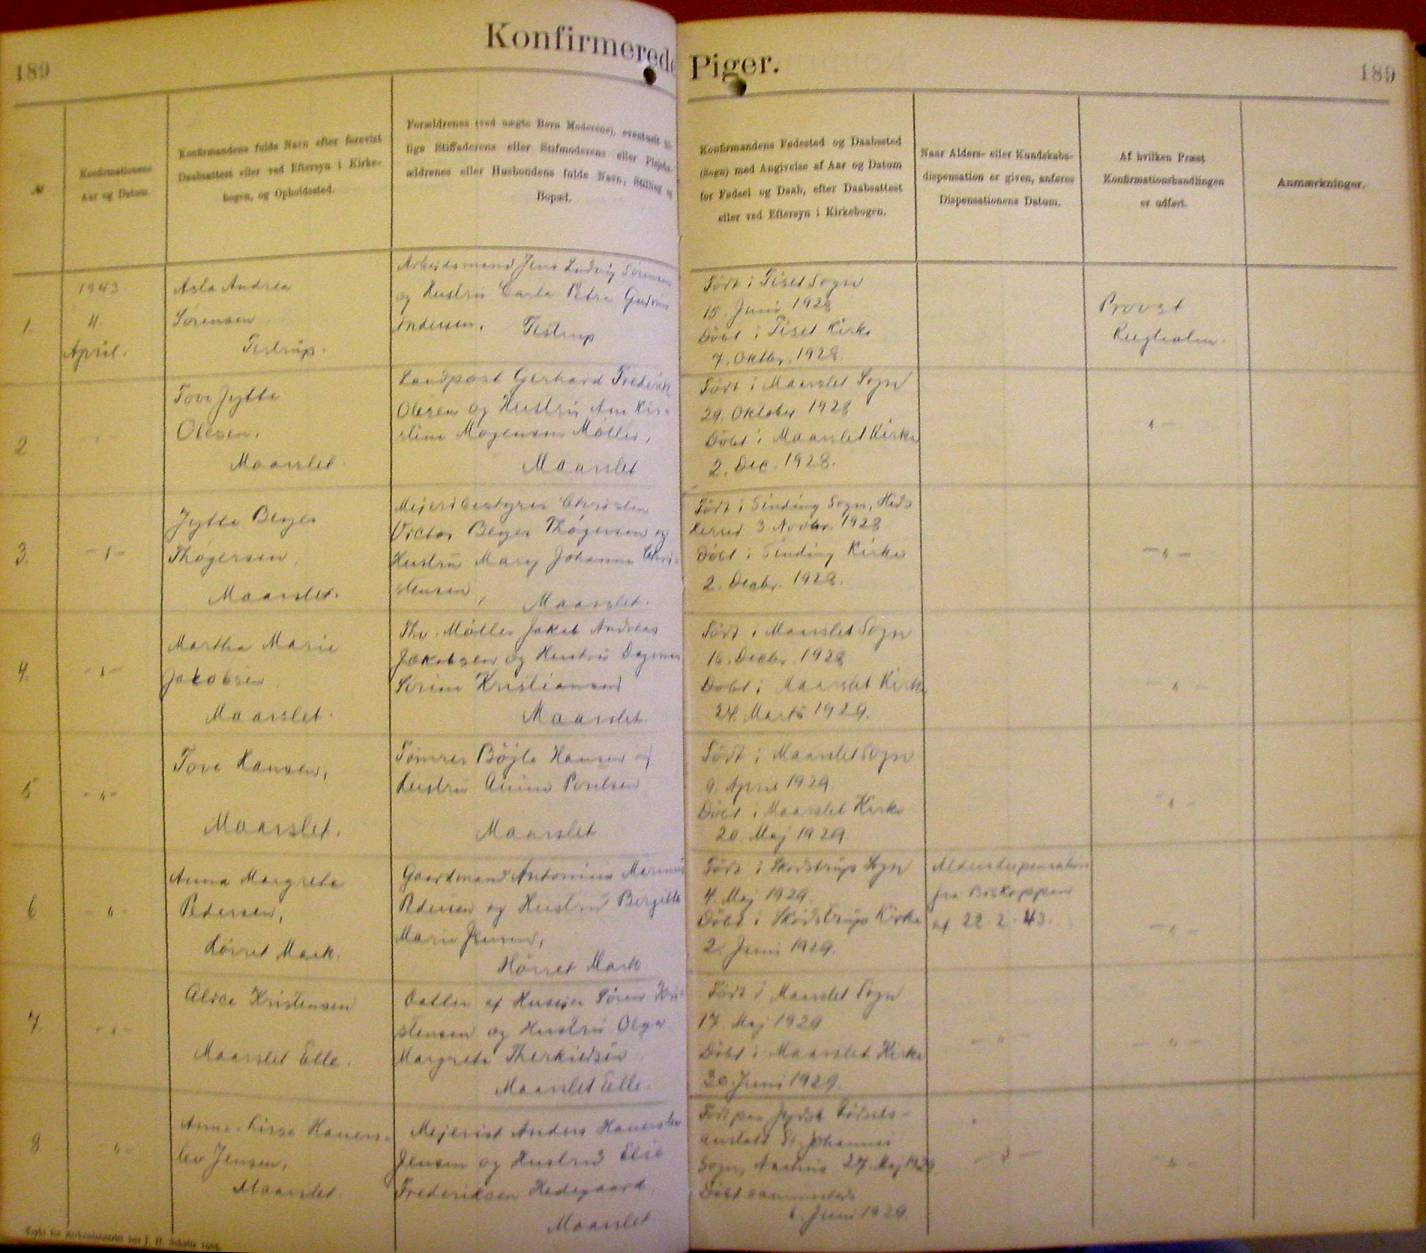 189
Konfirmerede Piger.
189
№
Konfirmationens
Aar og Datum.
Konfirmandens fulde Navn efter forevist
Daabsattest eller ved Eftersyn i Kirke-
bogen, og Opholdssted.
Forældrenes (ved uægte Børn Moderens), eventuelt til-
lige Stiffaderens eller Stifmoderens eller Plejefor-
ældrenes eller Husbondens fulde Navn, Stilling og
Bopæl.
Konfirmandens Fødested og Daabssted
(Sogn) med Angivelse af Aar og Datum
for Fødsel og Daab, efter Daabsattest
eller ved Eftersyn i Kirkebogen.
Naar Alders- eller Kundskabs-
dispensation er given, anføres
Dispensationens Datum.
Af hvilken Præst
Konfirmationshandlingen
er udført.
Anmærkninger.
1.
1943
11.
April.
Asta Andrea
Sørensen
Testrup.
Arbejdsmand Jens Ludvig Sørensen
og Hustru Carla Petra
Andersen. Testrup
Født i Tiset Sogn
15. Juni 1928
Døbt i Tiset Kirke
7. Oktbr. 1928.
Provst
2
- " -
Tove Jytte
Olesen.
Maarslet.
Landpost Gerhard Frederik
Olesen og Hustru Ane Kir-
stine Mogensen Møller,
Maarslet
Født i Maarslet Sogn
29. Oktober 1928
Døbt i Maarslet Kirke
2. Dec. 1928.
- " -
3.
- " -
Jytte Berger
Thøgersen.
Maarslet.
Mejeribestyrer Christen
Victor Berger Thøgersen og
Hustru Mary Johanne Chri-
stensen, Maarslet.
Født i Sinding Sogn, Hids
Herred 3 Novbr. 1928
Døbt i Sinding Kirke
2. Decbr. 1928.
- " -
4.
- " -
Martha Marie
Jakobsen
Maarslet.
Møller Jakob Andreas
Jakobsen og Hustru Dagmar
Serine Kristiansen
Maarslet.
Født i Maarslet Sogn
16. Decbr. 1928
Døbt i Maarslet Kirke
24. Marts 1929.
- " -
5
- " -
Tove Hansen,
Maarslet.
Tømrer Bøjle Hansen og
Hustru Anine Poulsen
Maarslet
Født i Maarslet Sogn
9. April 1929
Døbt i Maarslet Kirke
20. Maj 1929.
- " -
6
- " -
Anna Margrete
Pedersen,
Hørret Mark.
Gaardmand Antonius Marinus
Pedersen og Hustru Bergitte
Marie Jensen,
Hørret Mark
Født i Skødstrup Sogn
4. Maj 1929.
Døbt i Skødstrup Kirke
2. Juni 1929.
Aldersdispensation
fra Biskoppen
af 22. 2. 43.
- " -
7.
- " -
Alice Kristensen
Maarslet Elle.
Datter af Husejer Søren Kri-
stensen og Hustru Olga
Margrete Therkildsen
Maarslet Elle.
Født i Maarslet Sogn
17. Maj 1929
Døbt i Maarslet Kirke
30 Juni 1929.
- " -
- " -
8
- " -
Anna-Lissa Hauers-
lev Jensen,
Maarslet.
Mejerist Anders Hauerslev
Jensen og Hustru Elsie
Frederiksen Hedegaard
Maarslet
Født paa Jydsk Fødsels-
anstalt St. Johannes
Sogn, Aarhus 27. Maj 1929
Døbt sammesteds
Juni 1929.
- " -
- " -